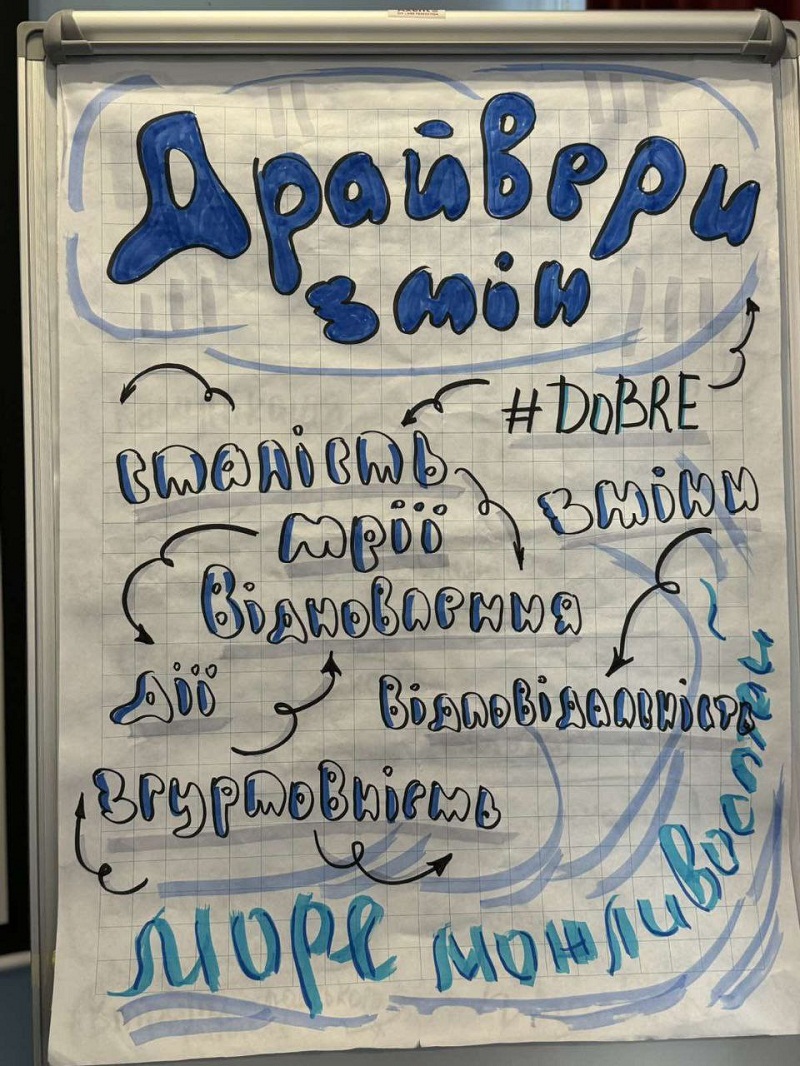 Драйвери
змін
#DOBRE
сталість
зміни
мрії
Відновлення
дії
відповідальність
згуртовність
море можливостей